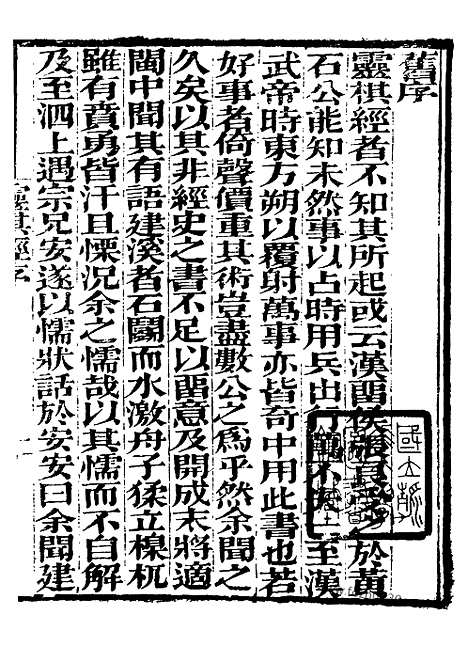 舊序
靈棋經者不知其所起或云漢畱侯張良於黃
石公能知未然事以占時用兵出行不至漢
武帝時東方朔以覆射萬事亦皆奇中用此書也若
好事者倚聲價重其術豈盡數公之爲乎然余聞之
久矣以其非經史之書不足以畱意及開成末將適
閩中聞其有語建溪者石鬭而水激舟子猱立槔杌
雖有賁勇皆汗且慄況余之懦哉以其懦而不自解
及至泗上遇宗兄安遂以懦狀話於安安曰余聞建
靈棋經序
一